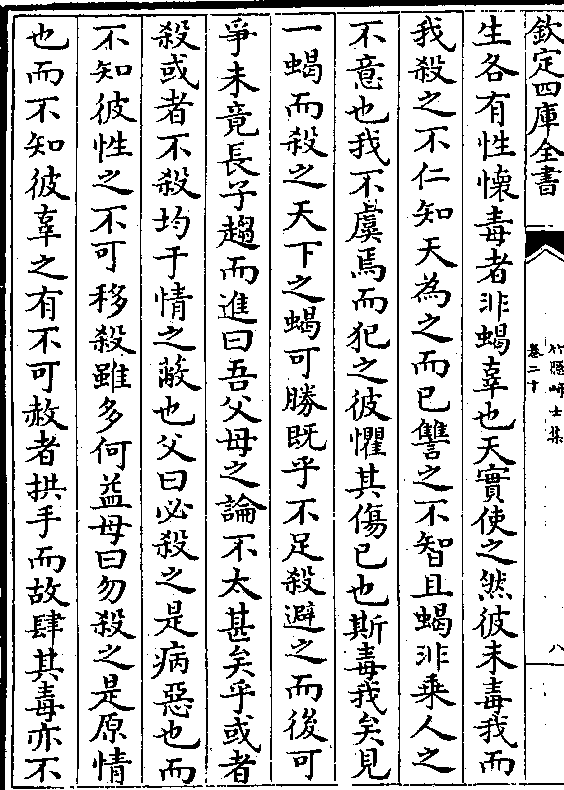 欽定四庫全書
竹隱畸士集
卷二十
八
生各有性懷毒者非蝎辜也天實使之然彼未毒我而
我殺之不仁知天為之而已讐之不智且蝎非乗人之
不意也我不虞焉而犯之彼懼其傷已也斯毒我矣見
一蝎而殺之天下之蝎可勝既乎不足殺避之而後可
爭未竟長子趨而進曰吾父母之論不太甚矣乎或者
殺或者不殺均于情之蔽也父曰必殺之是病惡也而
不知彼性之不可移殺雖多何益母曰勿殺之是原情
也而不知彼辜之有不可赦者拱手而故肆其毒亦不